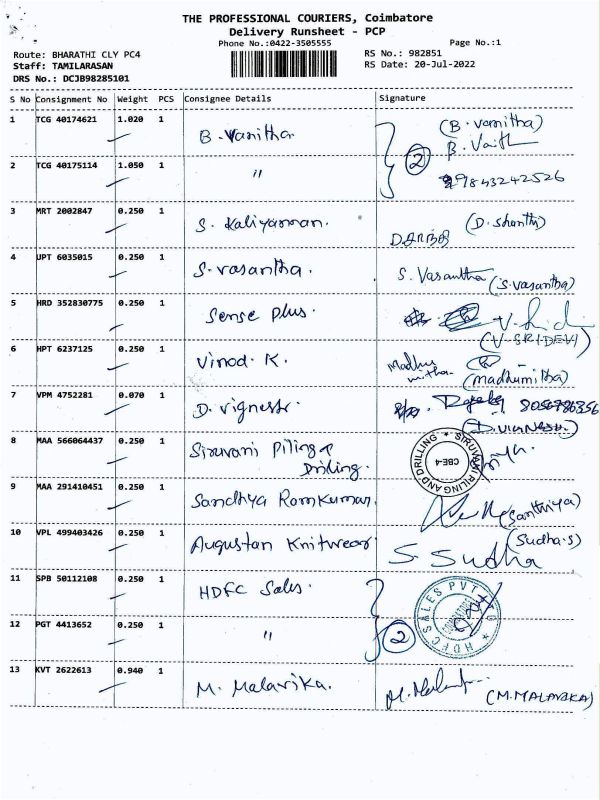 THE PROFESSIONAL COURIERS, Coimbatore
Delivery Runsheet - PCP
Phone No.:0422-3505555
Page No.:1
Route: BHARATHI CLY PC4
RS No.: 982851
Staff: TAMILARASAN
RS Date: 20-Jul-2022
DRS No.: DCJB98285101
S No Consignment No Weight PCS Consignee Details Signature
1 TCG 40174621 1.020 1 B. Vanitha (B. vanitha)
B. Vaith
2 TCG 40175114 1.050 1 " 2 9843242526
3 MRT 2002847 0.250 1 S. Kaliyamman. (D. Shanthi)
4 UPT 6035015 0.250 1 S. vasantha. S. Vasantha (S. vasantha)
5 HRD 352830775 0.250 1 Sense plus. (V-SRIDEVI)
6 HPT 6237125 0.250 1 Vinod. K. Madhumitha (madhumitha)
7 VPM 4752281 0.070 1 D. vignesh. 8056786356
(D.VIGNESH.)
8 MAA 566064437 0.250 1 Siruvani Piling & Drilling. SIRUVANI PILING AND DRILLING CBE-4
9 MAA 291410451 0.250 1 Sandhya Ramkumar. (Santhiya)
10 VPL 499403426 0.250 1 Augustan Knitwear S. Sudha (Sudha.S)
11 SPB 50112108 0.250 1 HDFC Sales. HDFC SALES PVT LTD
12 PGT 4413652 0.250 1 " 2
13 KVT 2622613 0.940 1 M. Malavika. (M.MALAVIKA)